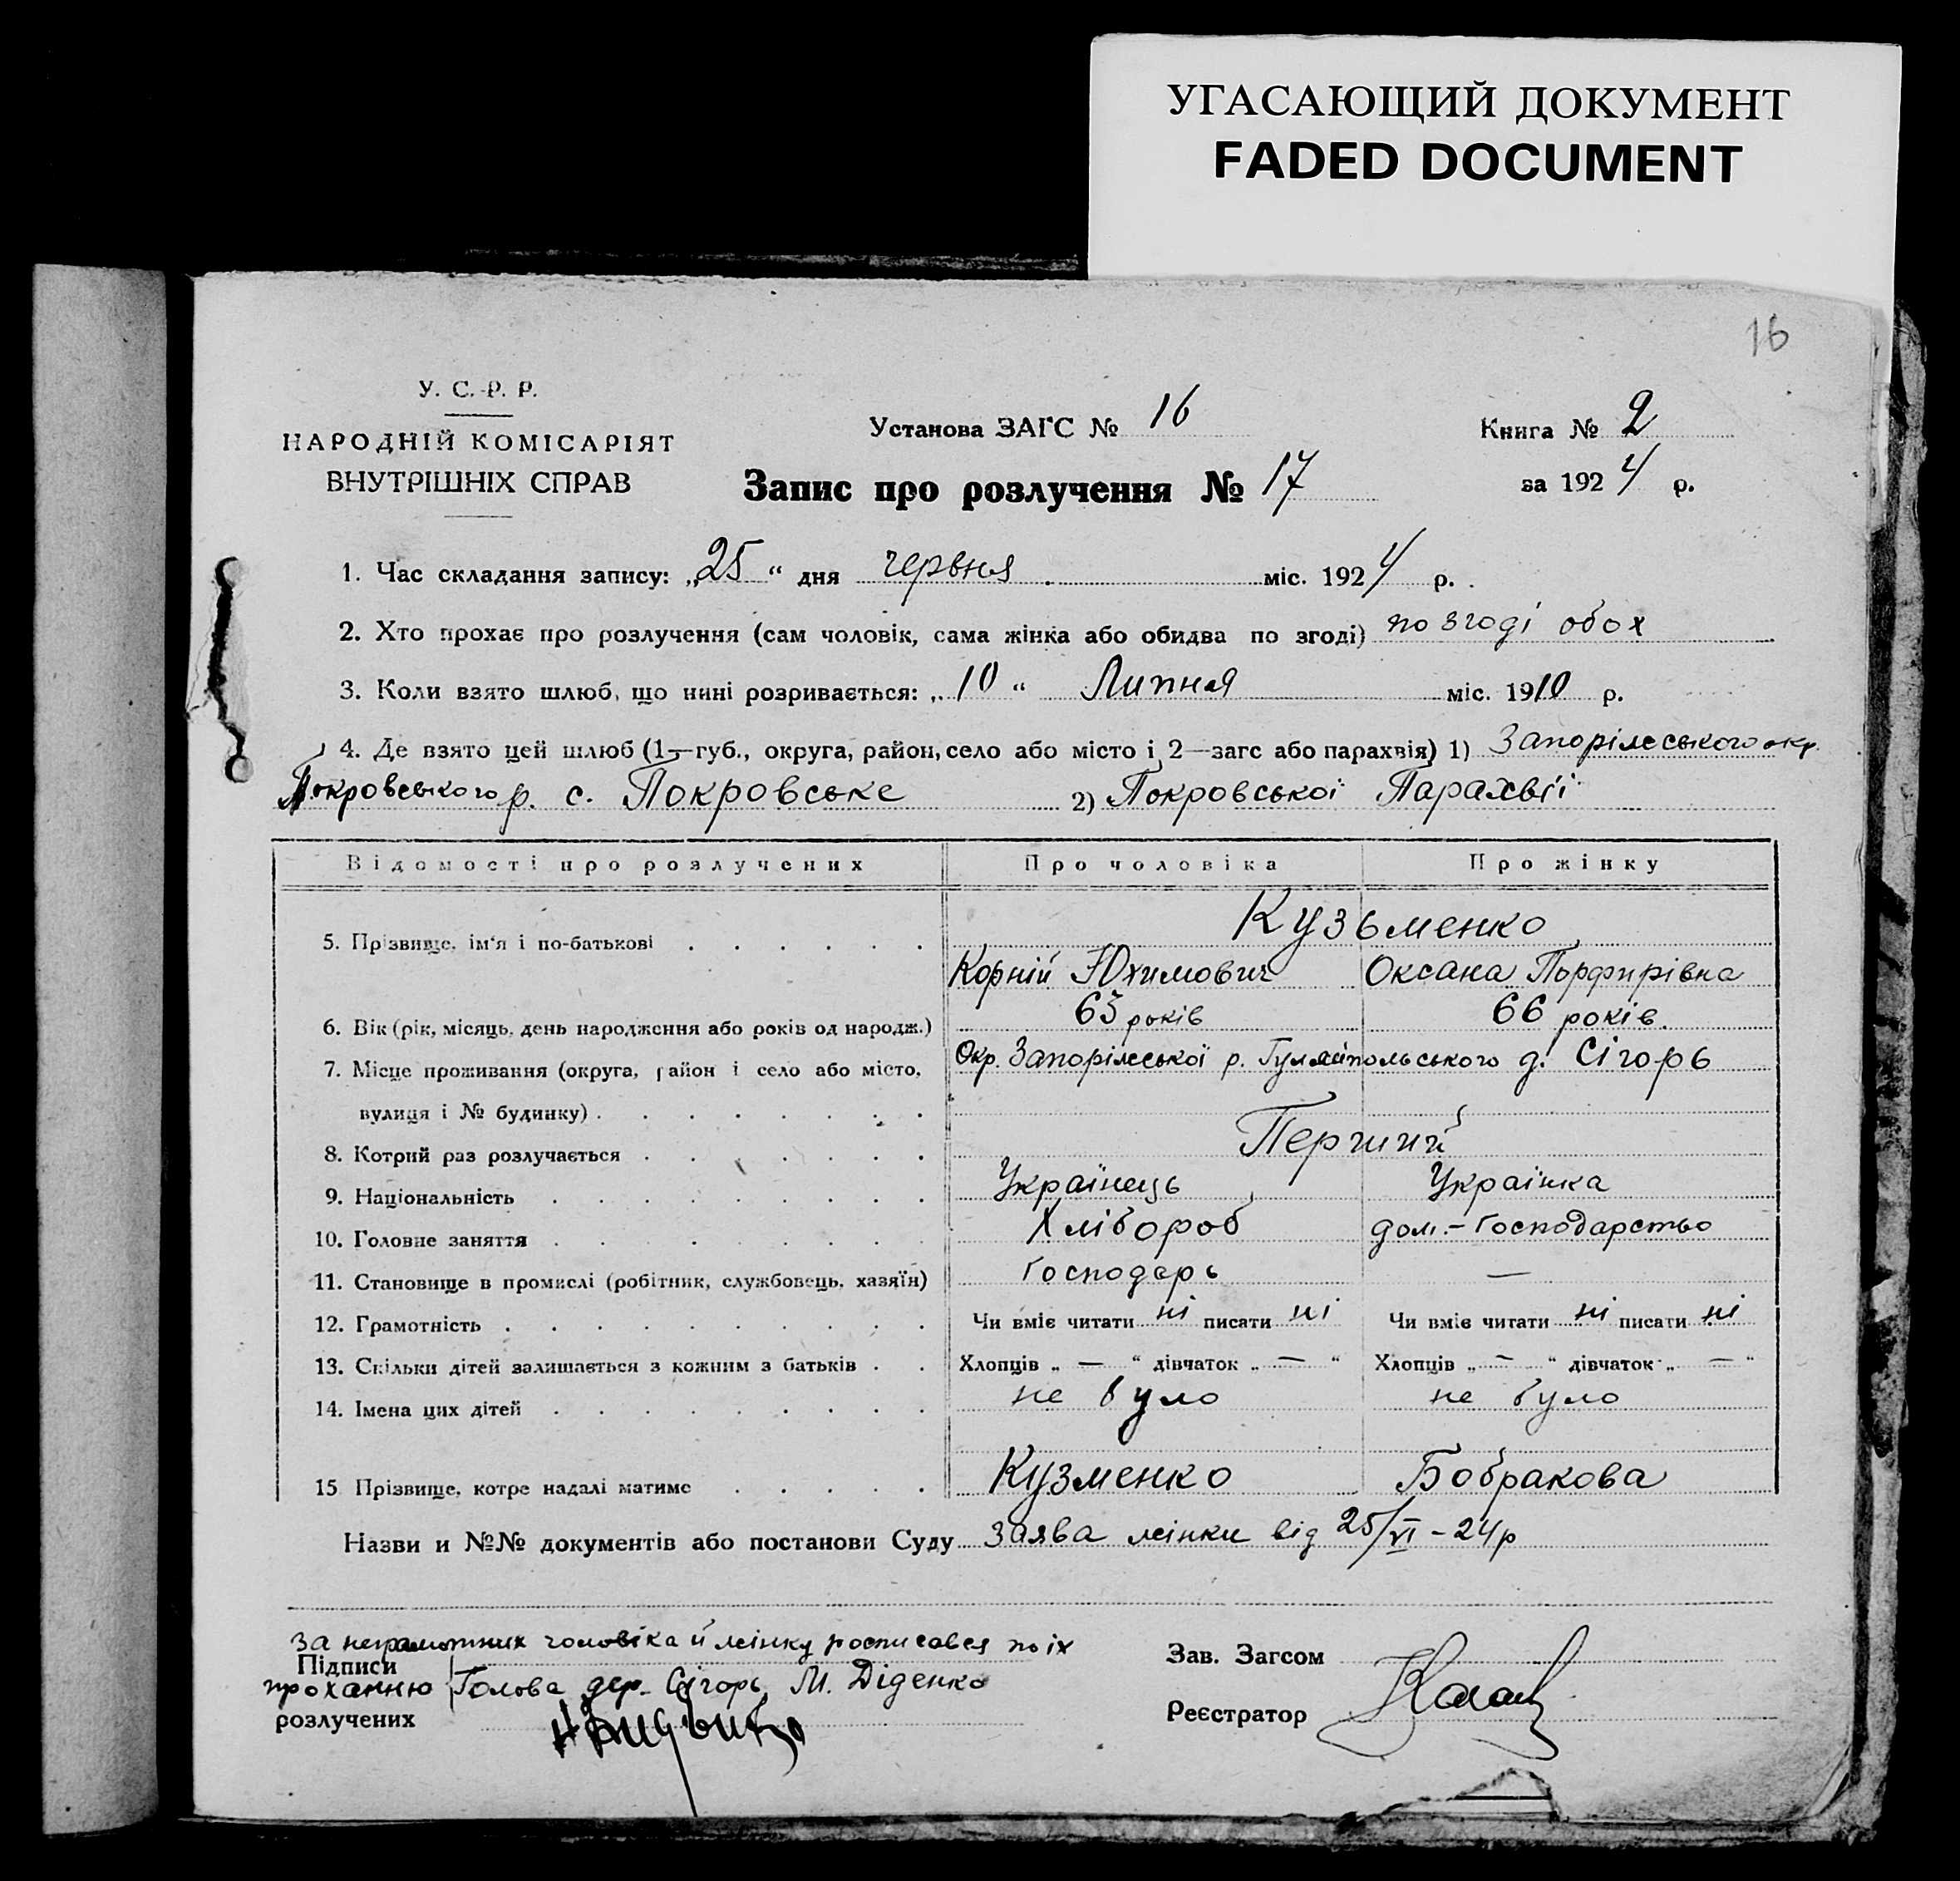 УГАСАЮЩИЙ ДОКУМЕНТ
FADED DOCUMENT
16
У. С. Р. Р.
НАРОДНІЙ КОМІСАРІЯТ
ВНУТРІШНІХ СПРАВ
Установа ЗАГС № 16
Книга № 2
Запис про розлучення № 17
за 1924 р.
1. Час складання запису: „25“ дня червня міс. 1924 р.
2. Хто прохає про розлучення (сам чоловік, сама жінка або обидва по згоді) по згоді обох
3. Коли взято шлюб, що нині розривається: „10“ Липня міс. 1910 р.
4. Де взято цей шлюб (1—губ., округа, район, село або місто і 2—загс або парахвія) 1) Запоріжського окр.
Покровського р. с. Покровське 2) Покровської Парахвії
Відомості про розлучених Про чоловіка Про жінку
Кузьменко
5. Прізвище, ім'я і по-батькові
Корній Юхимович Оксана Порфирівна
6. Вік (рік, місяць, день народження або років од народж.) 63 років 66 років.
7. Місце проживання (округа, район і село або місто, Окр. Запоріжської р. Гуляйпольського д. Сігорь
вулиця і № будинку)
8. Котрий раз розлучається Перший
9. Національність Українець Українка
10. Головне заняття Хлібороб дом.-господарство
11. Становище в промислі (робітник, службовець, хазяїн) господарь —
12. Грамотність Чи вміє читати ні писати ні Чи вміє читати ні писати ні
13. Скільки дітей залишається з кожним з батьків Хлопців „ — “ дівчаток „ — “ Хлопців „ — “ дівчаток „ — “
14. Імена цих дітей не було не було
15 Прізвище, котре надалі матиме Кузменко Бобракова
Назви и №№ документів або постанови Суду Заява жінки від 25/VI – 24 р
за неграмотних чоловіка й жінку росписався по їх
Підписи
проханню Голова дер. Сігорь М. Діденко
розлучених
Зав. Загсом
Реєстратор